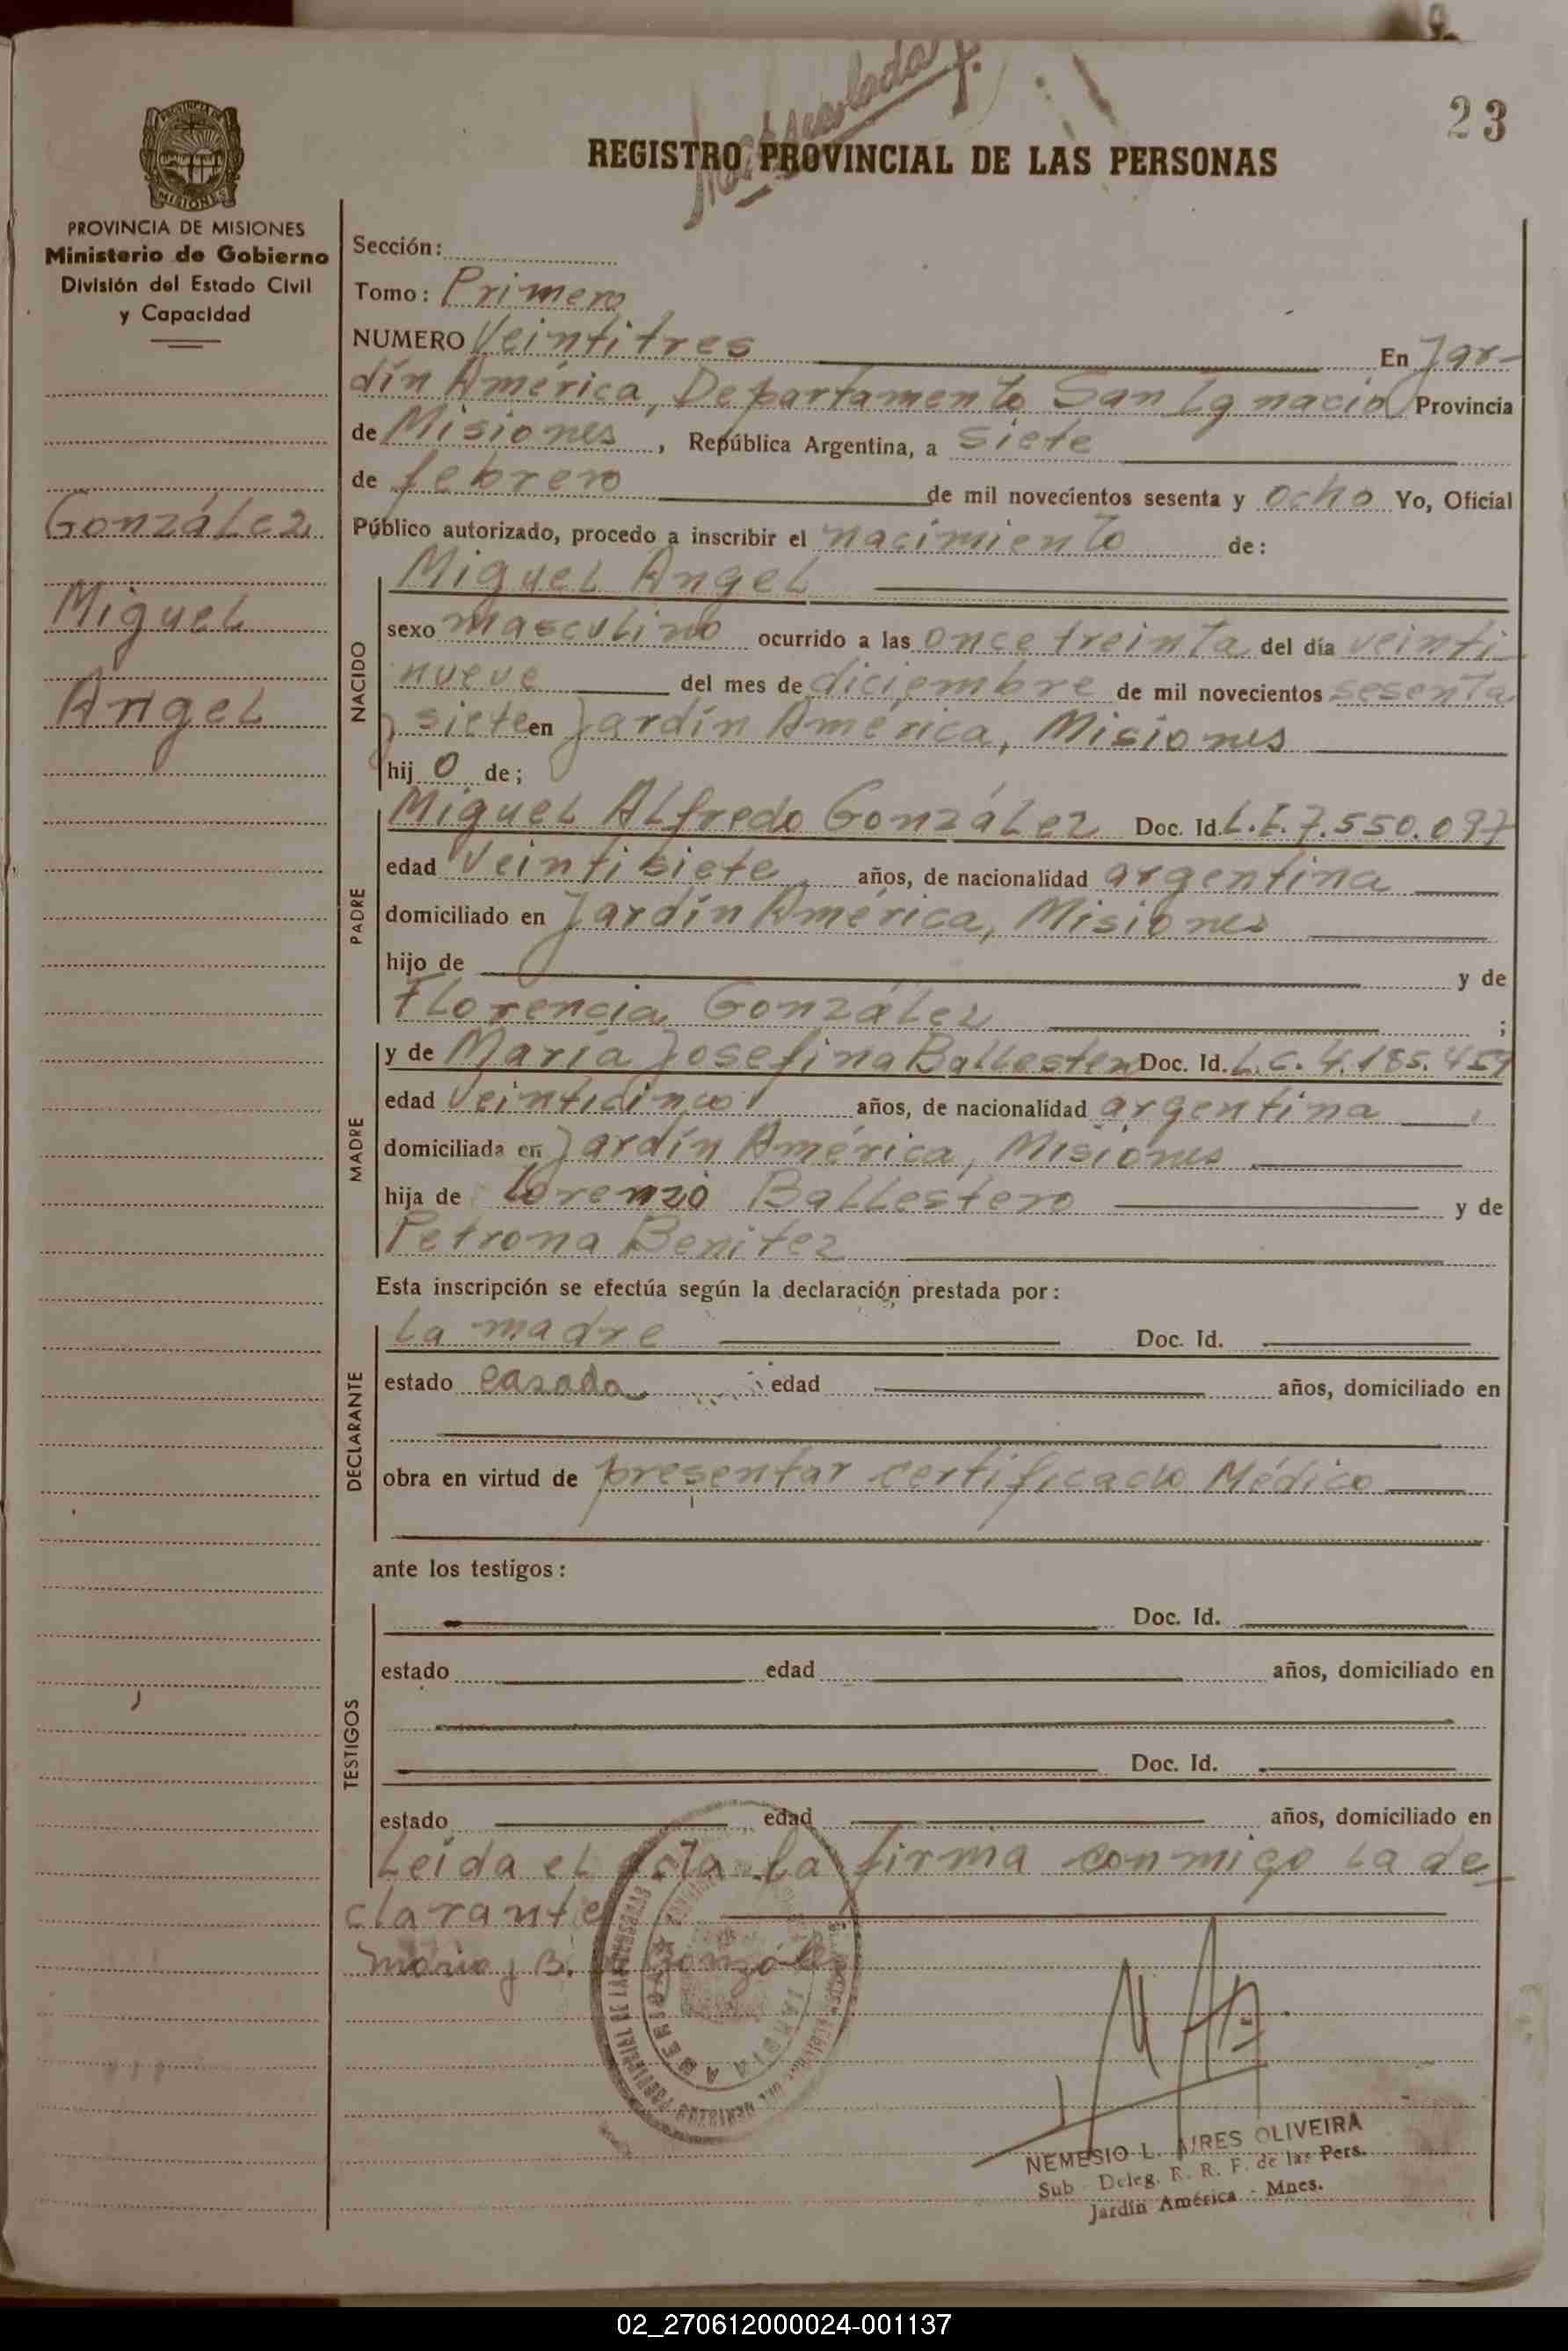 23
REGISTRO PROVINCIAL DE LAS PERSONAS
PROVINCIA DE MISIONES
Ministerio de Gobierno
División del Estado Civil
y Capacidad
González
Miguel
Angel
Sección:
Tomo: Primero
NUMERO Veintitres En Jar-
dín América, Departamento San Ignacio Provincia
de Misiones, República Argentina, a siete
de febrero de mil novecientos sesenta y ocho Yo, Oficial
Público autorizado, procedo a inscribir el nacimiento de:
Miguel Angel
NACIDO
sexo masculino ocurrido a las once treinta del día veinti
nueve del mes de diciembre de mil novecientos sesenta
y siete en Jardín América, Misiones
hij o de;
PADRE
Miguel Alfredo González Doc. Id. L.E. 7.550.097
edad Veintisiete años, de nacionalidad argentina
domiciliado en Jardín América, Misiones
hijo de y de
Florencia González ;
MADRE
y de María Josefina Ballestero Doc. Id. L.C. 4.185.454
edad Veinticinco años, de nacionalidad argentina
domiciliada en Jardín América, Misiones
hija de Lorenzo Ballestero y de
Petrona Benitez
Esta inscripción se efectúa según la declaración prestada por:
DECLARANTE
la madre Doc. Id.
estado casada edad años, domiciliado en
obra en virtud de presentar certificado Médico
ante los testigos:
TESTIGOS
Doc. Id.
estado edad años, domiciliado en
Doc. Id.
estado edad años, domiciliado en
Leida el acta la firma conmigo la de-
clarante
Maria J B. González
NEMESIO L. AIRES OLIVEIRA
Sub - Deleg. R. R. P. de las Pers.
Jardín América - Mnes.
02_270612000024-001137